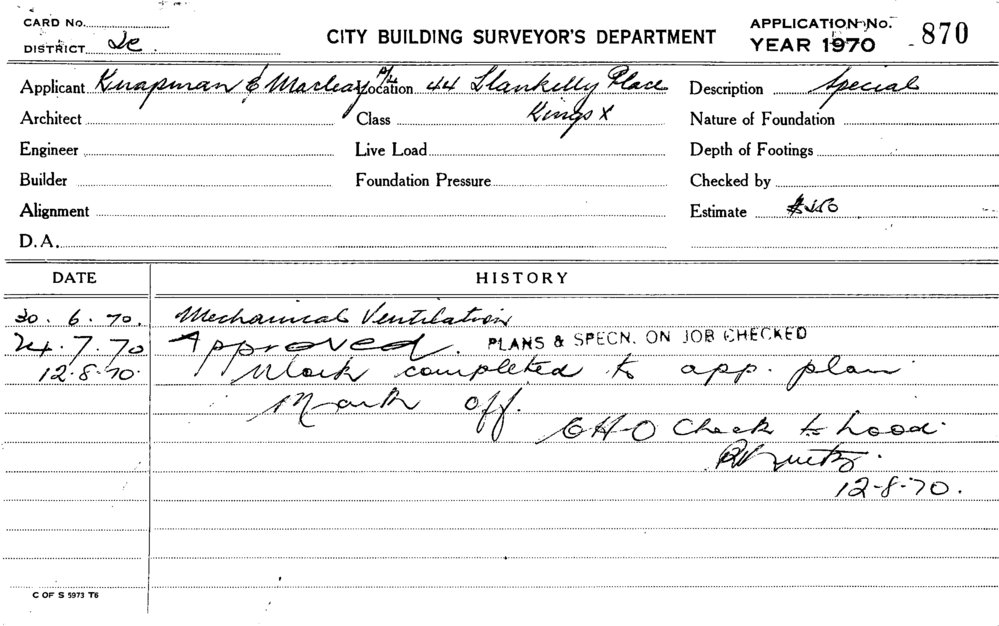 CARD No.
APPLICATION No. 870
DISTRICT
CITY BUILDING SURVEYOR'S DEPARTMENT
YEAR 1970
Applicant Knapman & Macleay P/L Location 44 Llankelly Place Description Special
Architect Class Kings X Nature of Foundation
Engineer Live Load Depth of Footings
Builder Foundation Pressure Checked by
Alignment Estimate
D.A.
DATE HISTORY
30.6.70. Mechanical Ventilation
24.7.70 Approved. PLANS & SPECN. ON JOB CHECKED
12.8.70. Work completed to app. plan
Mark off.
Check to hood.
12-8-70.
C OF S 5973 T6